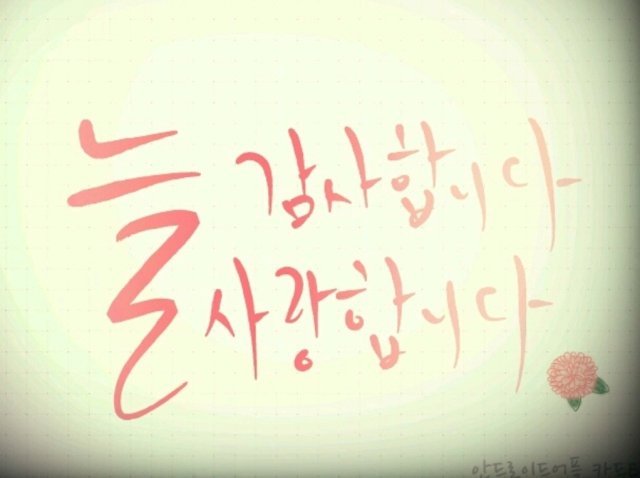 늘 감사합니다
사랑합니다
안드로이드어플